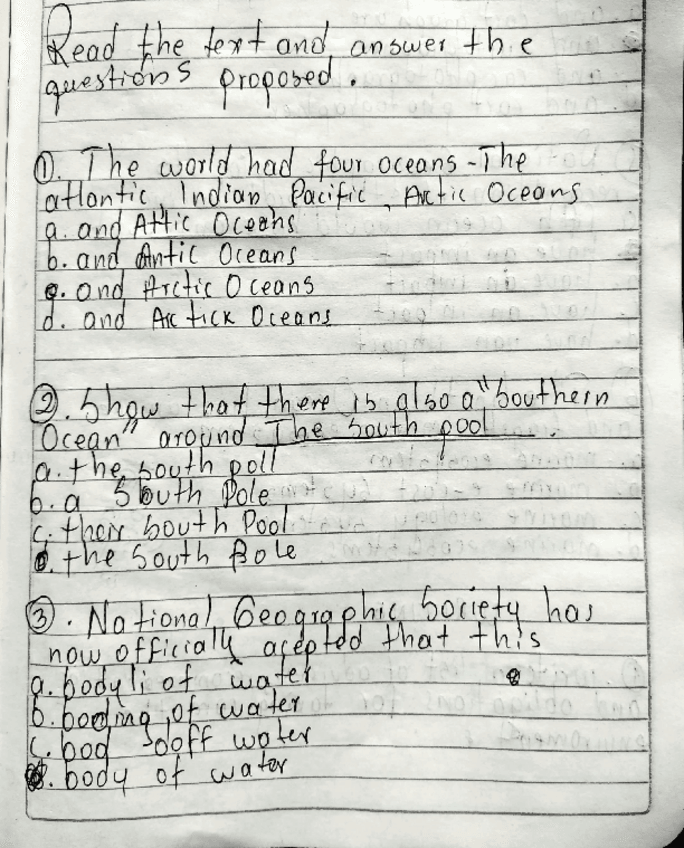 Read the text and answer the
questions proposed.
①. The world had four oceans - The
atlantic, Indian Pacific, Arctic Oceans
a. and Attic Oceans
b. and Antic Oceans
c. and Arctic Oceans
d. and Arc tick Oceans
②. Show that there is also a "Southern
Ocean" around The South pool.
a. the south poll
b. a South Pole
c. their South Pool
d. the South Pole
③. National Geographic Society has
now officially acepted that this
a. bodyli of water
b. boding of water
c. bod soff water
d. body of water